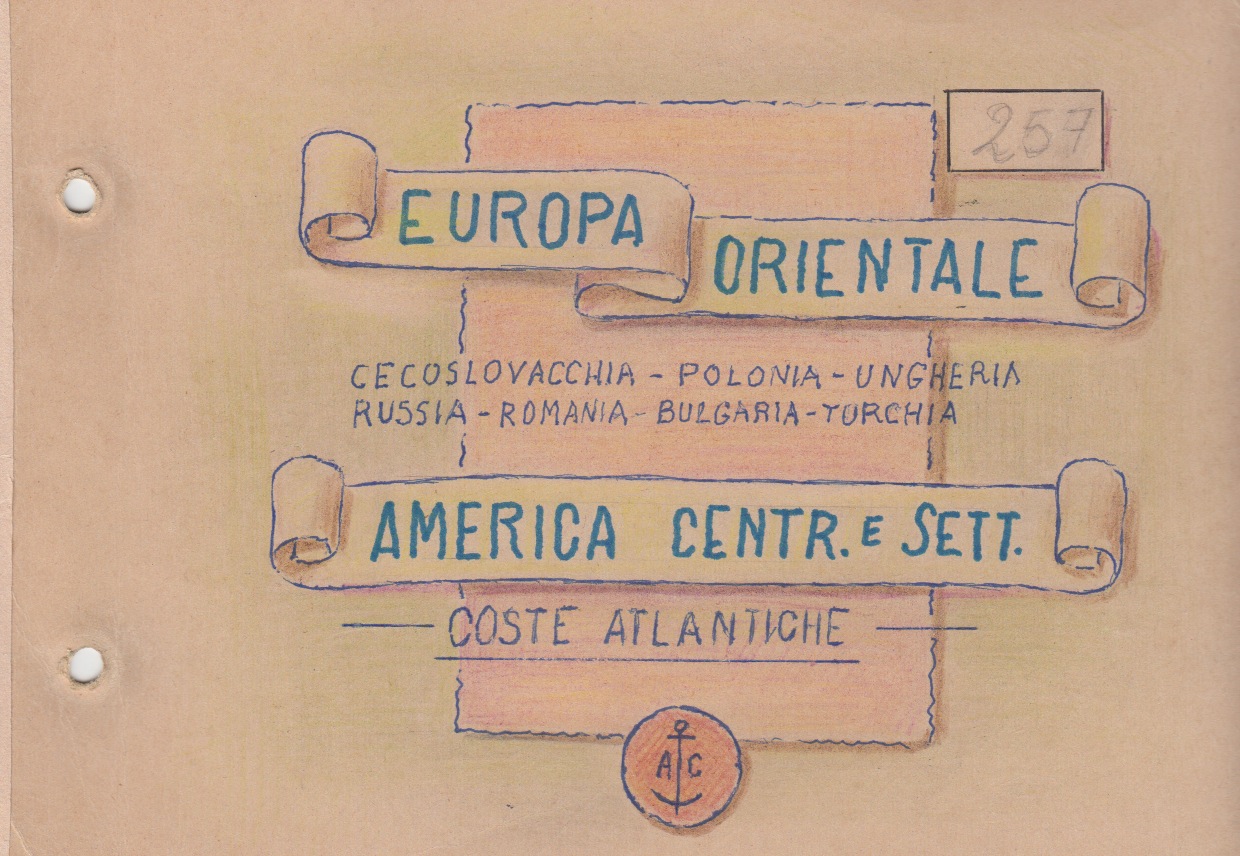 257
EUROPA ORIENTALE
CECOSLOVACCHIA - POLONIA - UNGHERIA
RUSSIA - ROMANIA - BULGARIA - TURCHIA
AMERICA CENTR. E SETT.
COSTE ATLANTICHE
A C